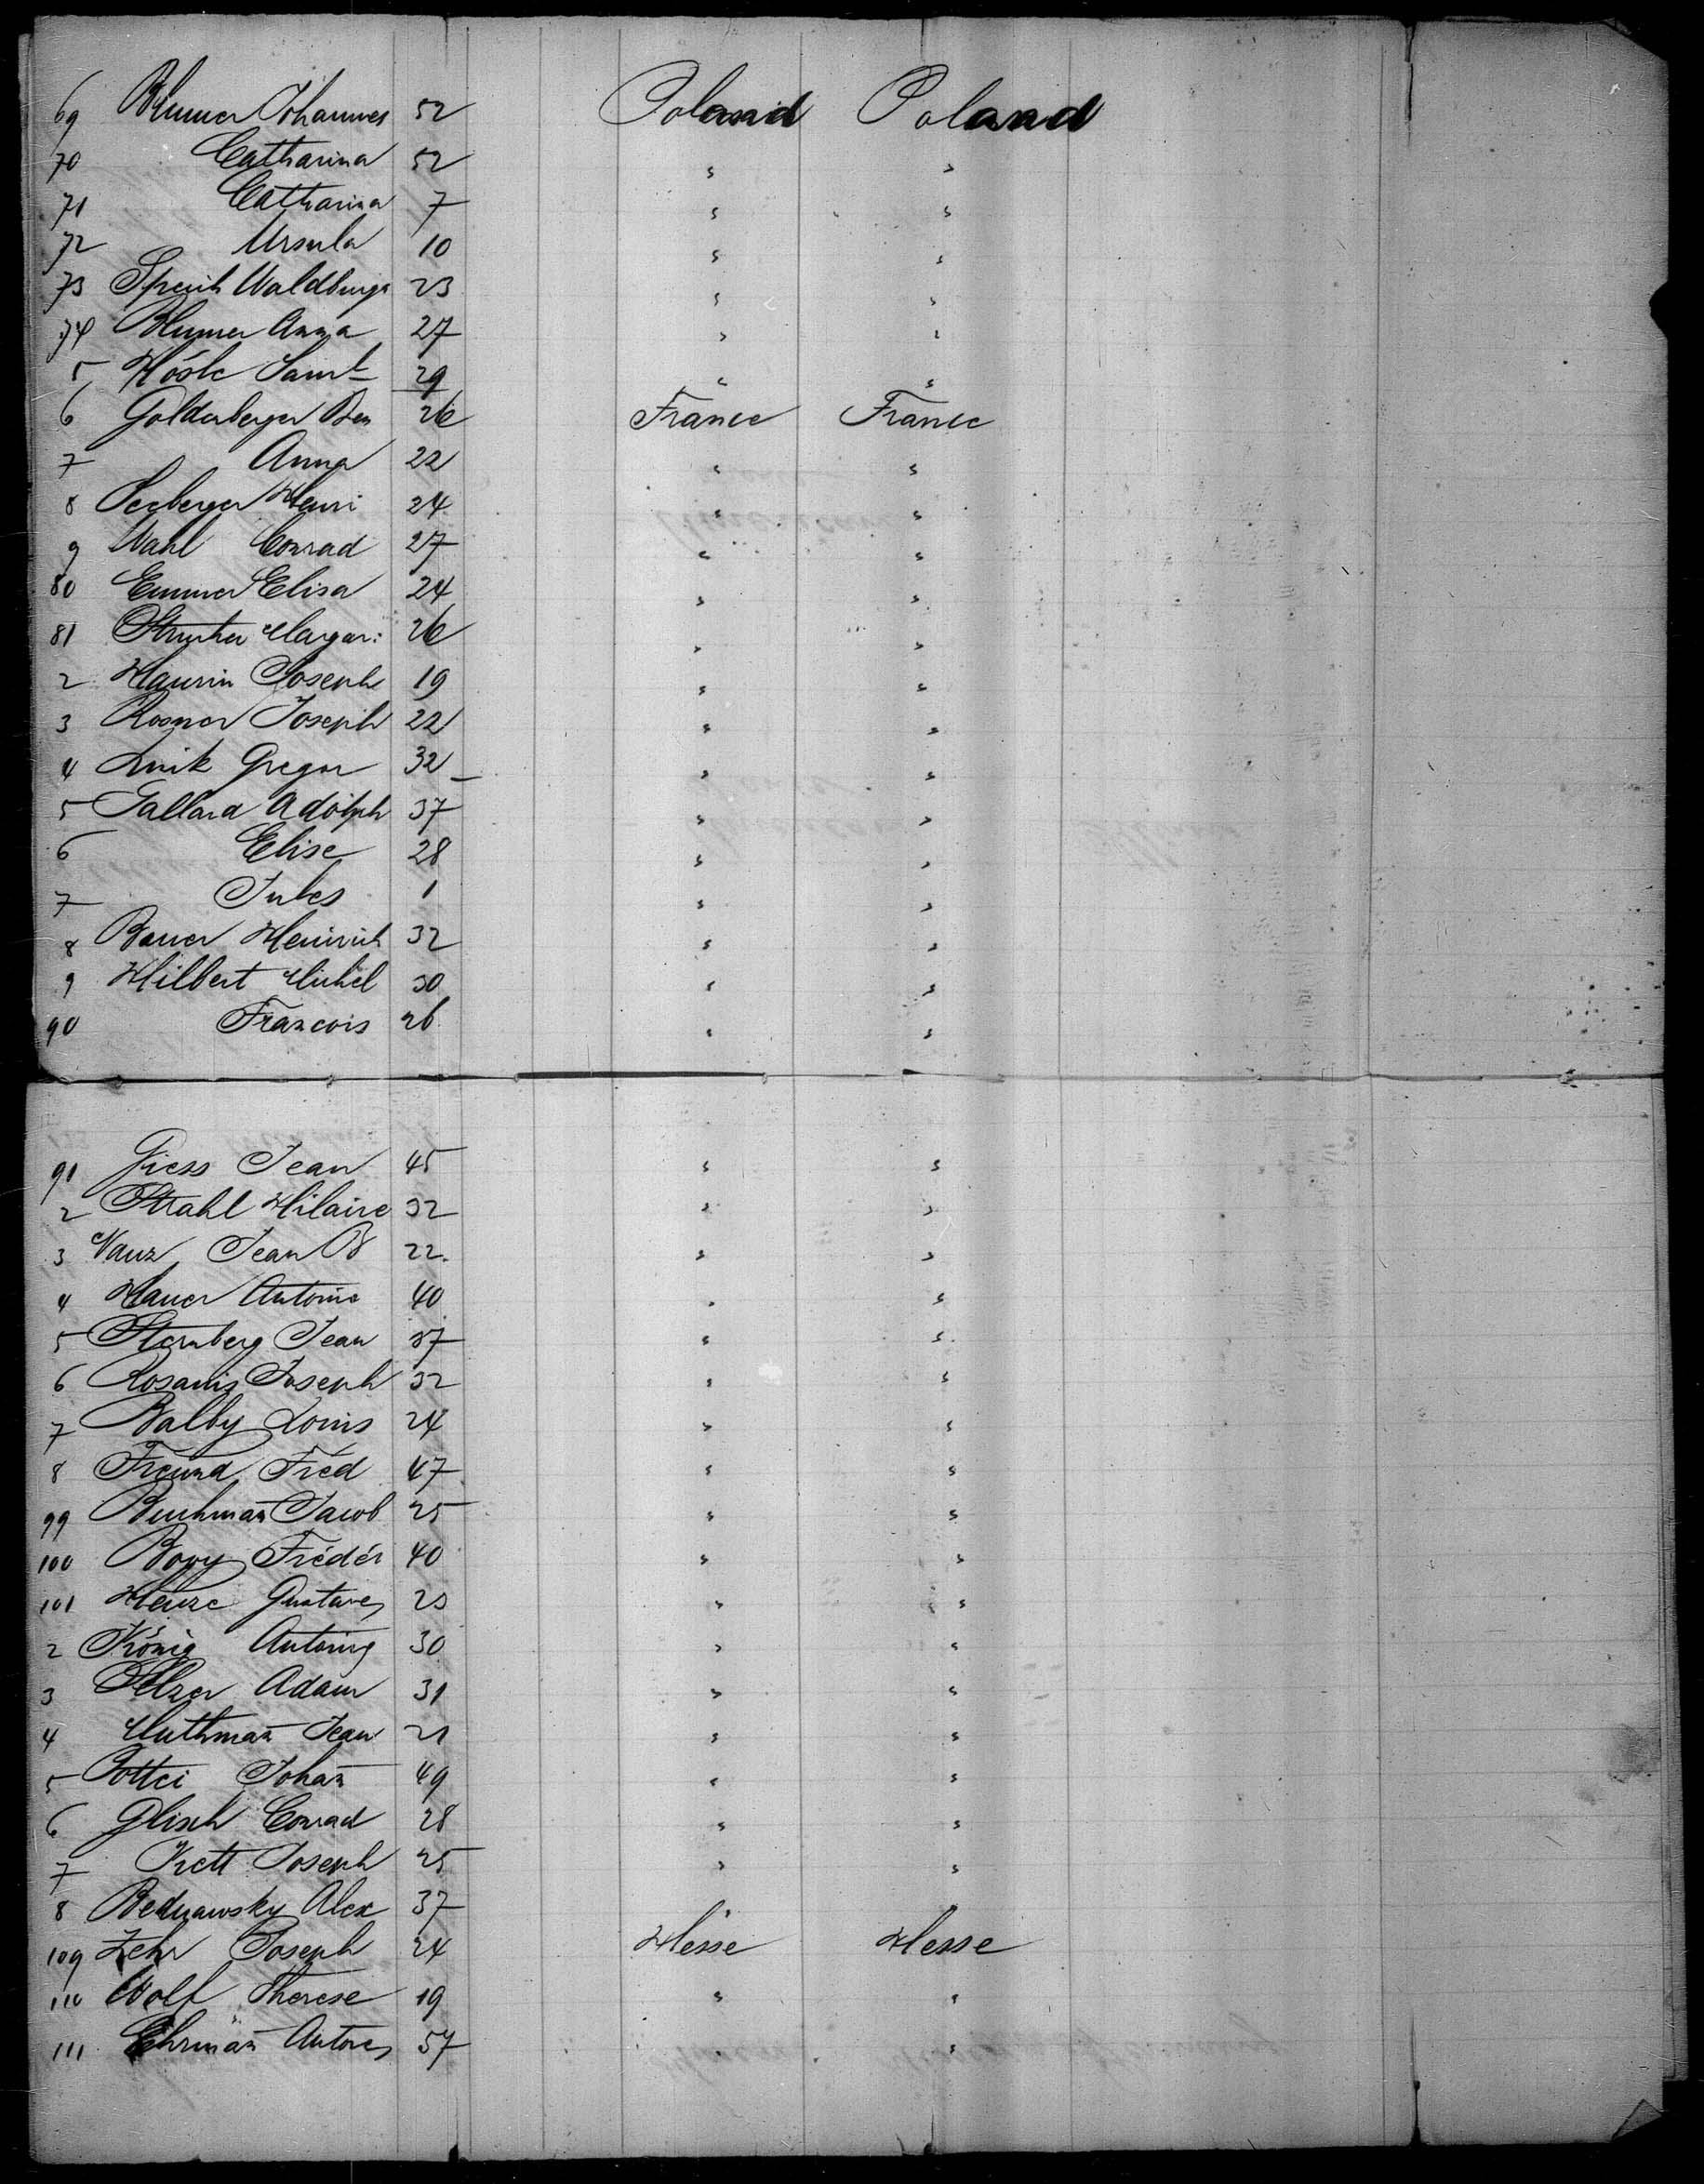 69 Blumer Johannes 52 Poland Poland
70 Catharina 52 " "
71 Catharina 7 " "
72 Ursula 10 " "
73 Waldburga 23 " "
74 Blumer Anna 27 " "
5 Hösle 29 " "
6 Goldenberger Ben 26 France France
7 Anna 22 " "
8 Seeberger Henri 24 " "
9 Wahl Conrad 27 " "
80 Emmer Elisa 24 " "
81 Margar: 26 " "
2 Haurin Joseph 19 " "
3 Rosner Joseph 22 " "
4 Link Gregor 32 " "
5 Gallard Adolph 37 " "
6 Elise 28 " "
7 Jules 1 " "
8 Bauer Heinrich 32 " "
9 Hilbert Michel 30 " "
90 Francois 26 " "
91 Giess Jean 45 " "
2 Strahl Hilaire 32 " "
3 Jean B 22. " "
4 Hauer Antoine 40 " "
5 Sternberg Jean 37 " "
6 Joseph 32 " "
7 Balby Louis 24 " "
8 Freund Fred 47 " "
99 Buchman̄ Jacob 25 " "
100 Frédér 40 " "
101 Gustave 23 " "
2 König Antoine 30 " "
3 Selzer Adam 31 " "
4 Muthman̄ Jean 21 " "
5 Johan̄ 49 " "
6 Glisch Conrad 28 " "
7 Joseph 25 " "
8 Alex 37 " "
109 Zehr Joseph 24 Hesse Hesse
110 Wolf Therese 19 " "
111 Ehrman̄ 57 " "